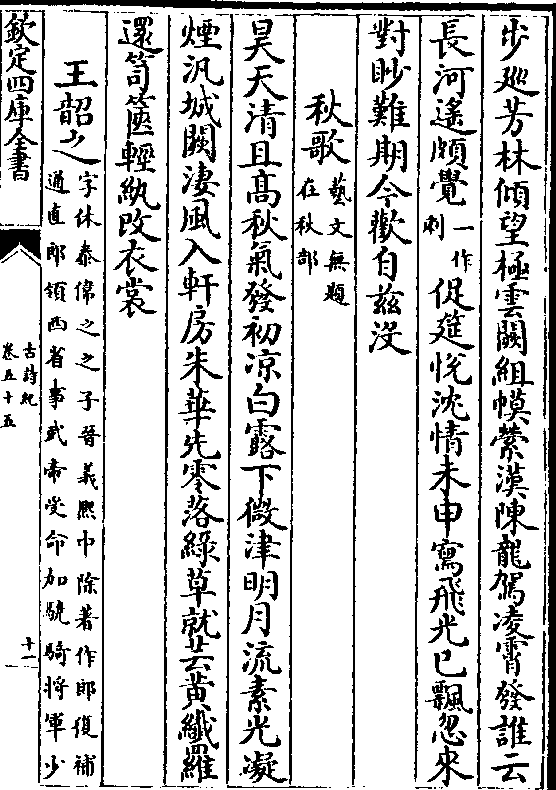 步廵芳林傾望極雲闕組幙縈漢陳龍駕凌霄發誰云
長河遙頗覺一作刺促筵悦沈情未申寫飛光已飄忽來
對眇難期今歡自兹沒
秋歌藝文無題在秋部
昊天清且髙秋氣發初凉白露下微津明月流素光凝
煙汎城闕淒風入軒房朱華先零落緑草就芸黄纎羅
還笥篋輕紈改衣裳
王韶之字休泰偉之之子晉義熙中除著作郎復補
通直郎領西省事武帝受命加驍騎将軍少
欽定四庫全書
古詩紀
卷五十五
十一